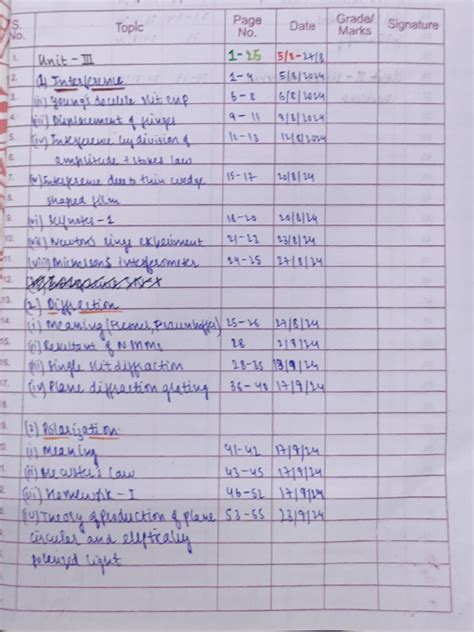 S. No. Topic Page No. Date Grade/ Marks Signature
1. Unit - III 1-25 5/8-27/8
2. (1) Interference 1-4 5/8/2024
3. (ii) Young's double slit exp 5/8/2024
4. (iii) Displacement of fringes 9-11 9/8/2024
5. (iv) Interference by division of 12-13 12/8/2024
amplitude + stokes law
7. (v) Interference due to thin wedge 15-17 20/8/24
shaped film
9. (vi) 18-20 20/8/24
(vii) Newton's rings experiment 21-23 23/8/24
11. (viii) Michelson's interferometer 24-25 27/8/24
12.
13. (2) Diffraction
14. (i) Meaning (Fresnel, Fraunhoffer) 25-26 27/8/24
(ii) Resultant of N 28 2/9/24
(iii) Single slit diffraction 28-35 13/9/24
17. (iv) Plane diffraction grating 36-40 17/9/24
(3) Polarization
(i) Meaning 41-42 17/9/24
(ii) Brewster's Law 43-45 17/9/24
(iii) Homework - I 46-52 17/9/24
(iv) Theory of production of plane 53-55 23/9/24
circular and elliptically
polarized light